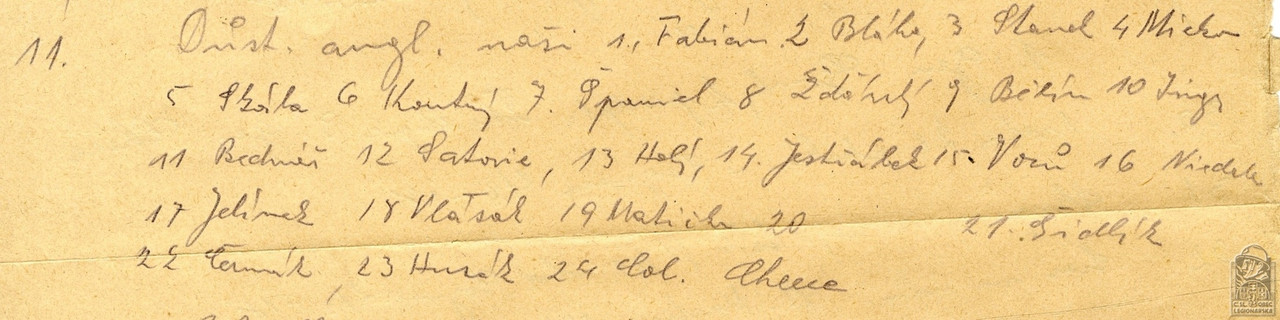 11. Důst. angl. naši 1., Fabián 2 Bláha, 3 Stanek 4 Micka
5 Skála 6 Koutný 7. Španiel 8 Žďárský 9 Bělín 10
11 Bednář 12 Satorie, 13 Holý, 14. Jestřábek 15. Vorů 16 Niedak
17 Jelínek 18 Vlasák 19 Maticka 20 21. Šidlík
22 Čermák, 23 Husák 24 Col.